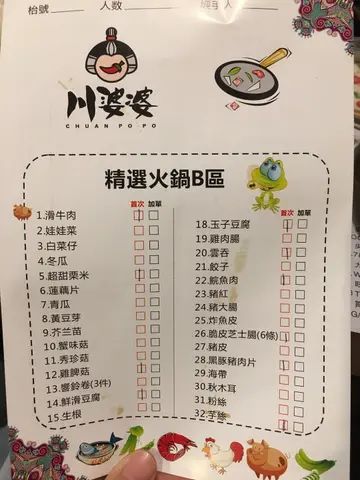 枱號 人数
川婆婆
CHUAN PO PO
精選火鍋B區
首次 加單
1.滑牛肉
2.娃娃菜
3.白菜仔
4.冬瓜
5.超甜栗米
6.蓮藕片
7.青瓜
8.黃豆芽
9.芥兰苗
10.蟹味菇
11.秀珍菇
12.雞脾菇
13.響鈴卷(3件)
14.鮮滑豆腐
15.生根
首次 加單
18.玉子豆腐
19.雞肉腸
20.雲吞
21.餃子
22.鯇魚肉
23.豬紅
24.豬大腸
25.炸魚皮
26.脆皮芝士腸(6條)
27.豬皮
28.黑豚豬肉片
29.海帶
30.秋木耳
31.粉絲
32.芋絲